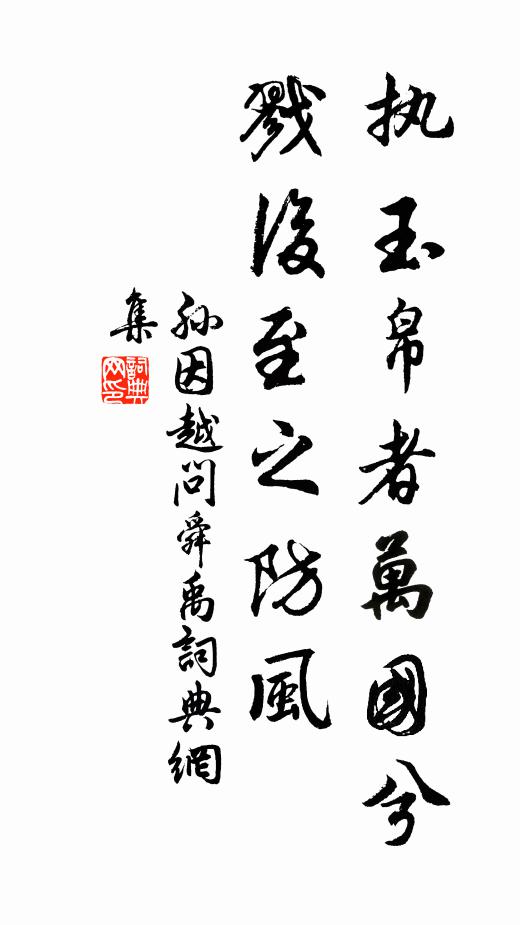 执玉帛者萬國兮
戮後至之防風
孙因越問舜禹詞典網
集
詞典网印